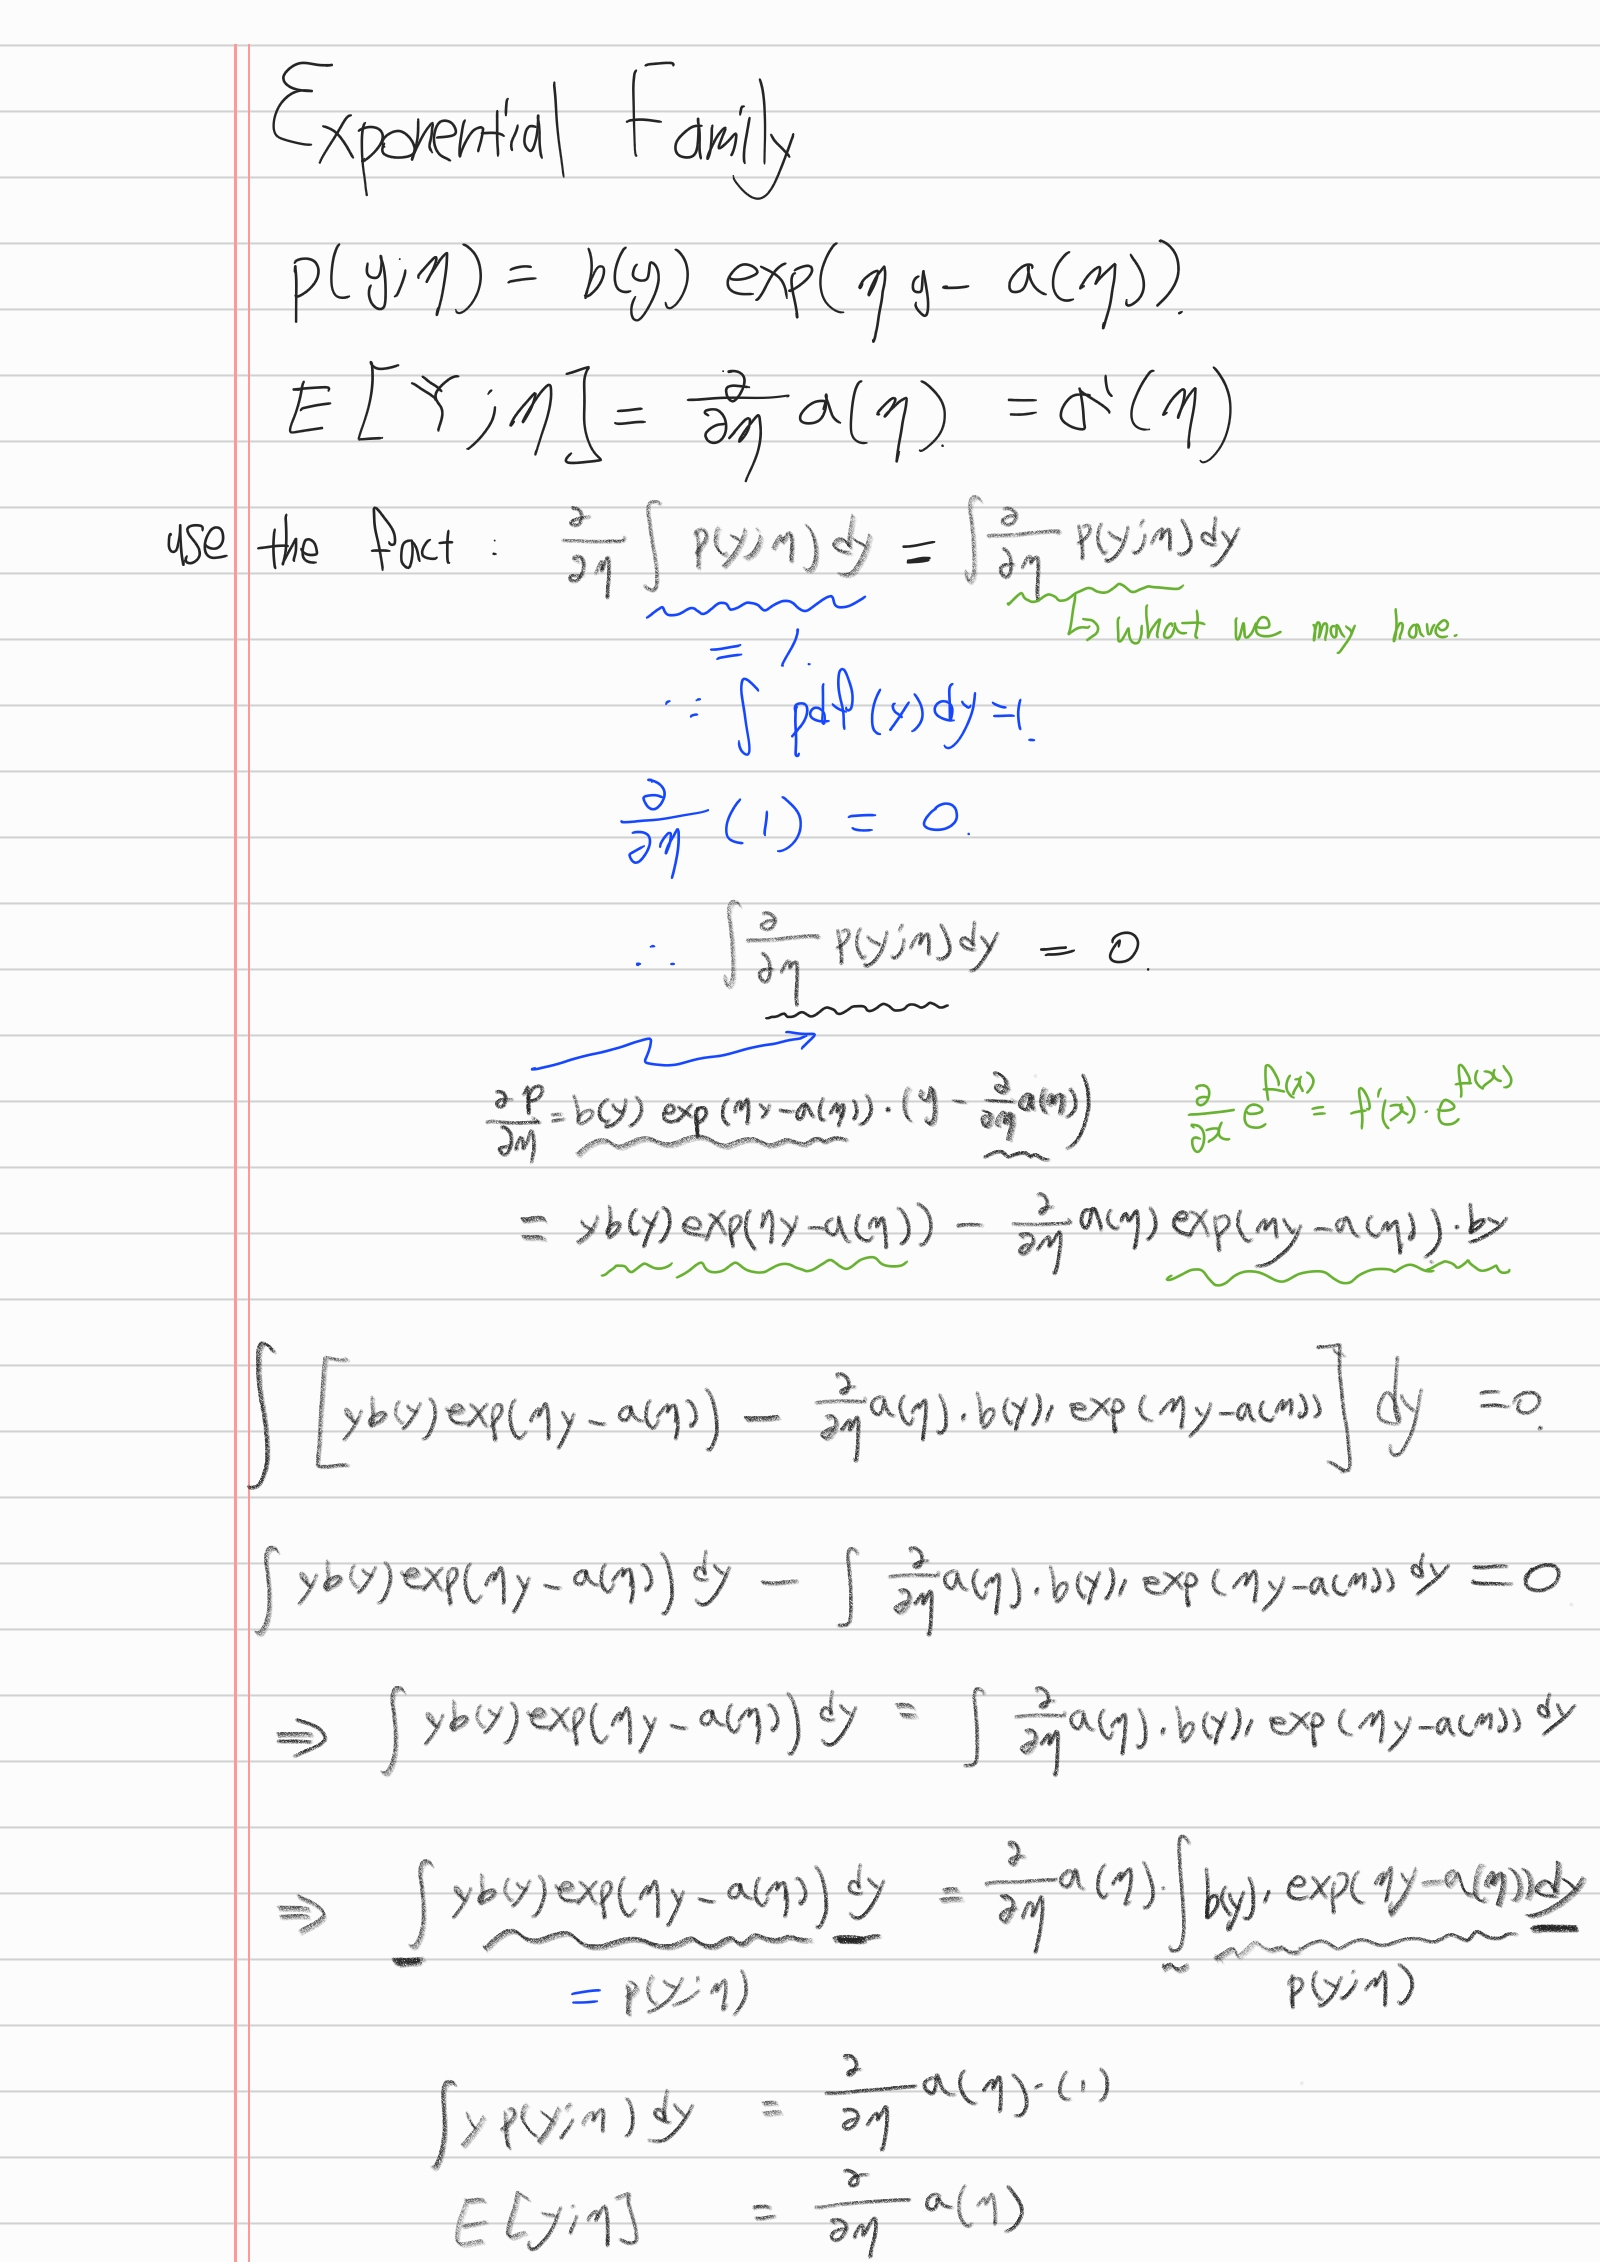 Exponential Family
p(y;η) = b(y) exp(ηy - a(η)).
E[Y;η] = ∂/∂η a(η). = a'(η)
use the fact : ∂/∂η ∫ p(y;η) dy = ∫ ∂/∂η p(y;η) dy
↳ what we may have.
= 1.
∵ ∫ pdf(y) dy = 1.
∂/∂η (1) = 0.
∴ ∫ ∂/∂η p(y;η) dy = 0.
∂p/∂η = b(y) exp(ηy - a(η)) · (y - ∂/∂η a(η)) ∂/∂x e^f(x) = f'(x) · e^f(x)
= yb(y) exp(ηy - a(η)) - ∂/∂η a(η) exp(ηy - a(η)) · by
∫ [yb(y) exp(ηy - a(η)) - ∂/∂η a(η) · b(y), exp(ηy - a(η))] dy = 0.
∫ yb(y) exp(ηy - a(η)) dy - ∫ ∂/∂η a(η) · b(y), exp(ηy - a(η)) dy = 0
⇒ ∫ yb(y) exp(ηy - a(η)) dy = ∫ ∂/∂η a(η) · b(y), exp(ηy - a(η)) dy
⇒ ∫ yb(y) exp(ηy - a(η)) dy = ∂/∂η a(η) · ∫ b(y), exp(ηy - a(η)) dy
= p(y;η) p(y;η)
∫ y p(y;η) dy = ∂/∂η a(η) · (1)
E[y;η] = ∂/∂η a(η)